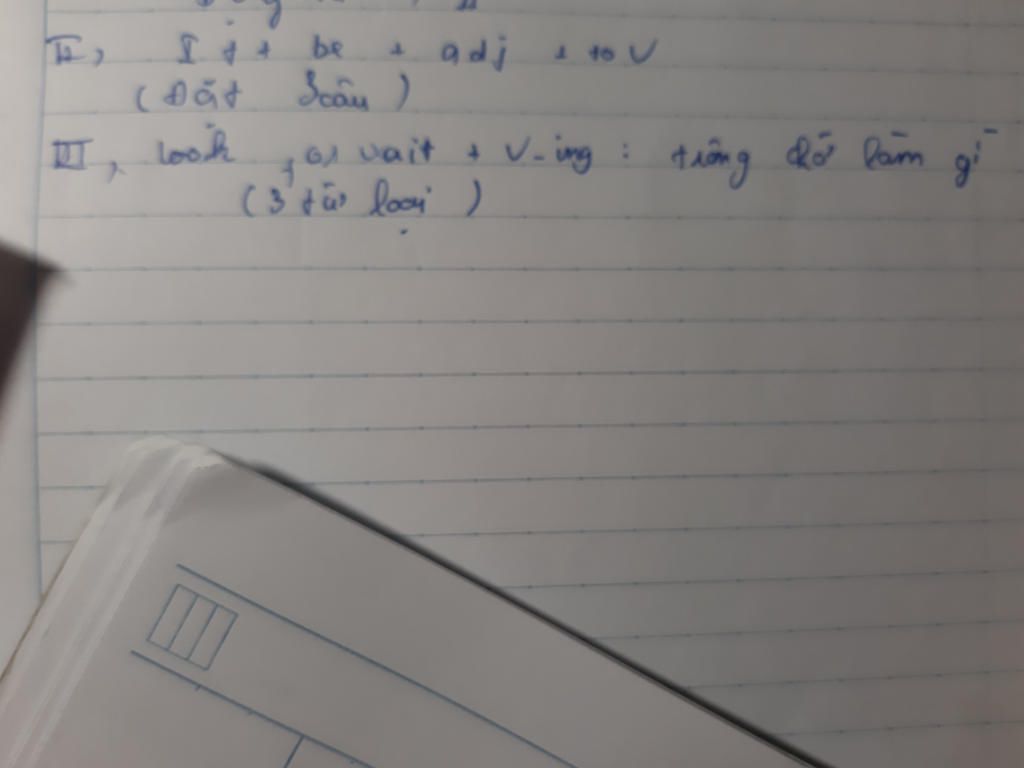 II, It + be + adj + to V
(Đặt 3 câu)
III, look, or wait + V-ing : trông đợi làm gì
(3 từ loại)